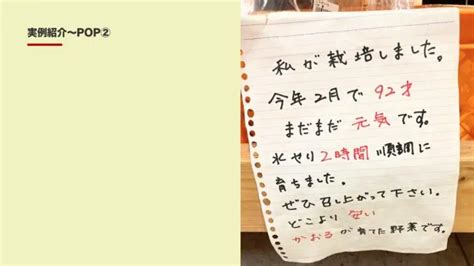 実例紹介〜POP②
私が栽培しました。
今年2月で92才
まだまだ元気です。
水やり2時間順調に
育ちました。
ぜひ召し上がって下さい。
どこより安い
かおるが育てた野菜です。